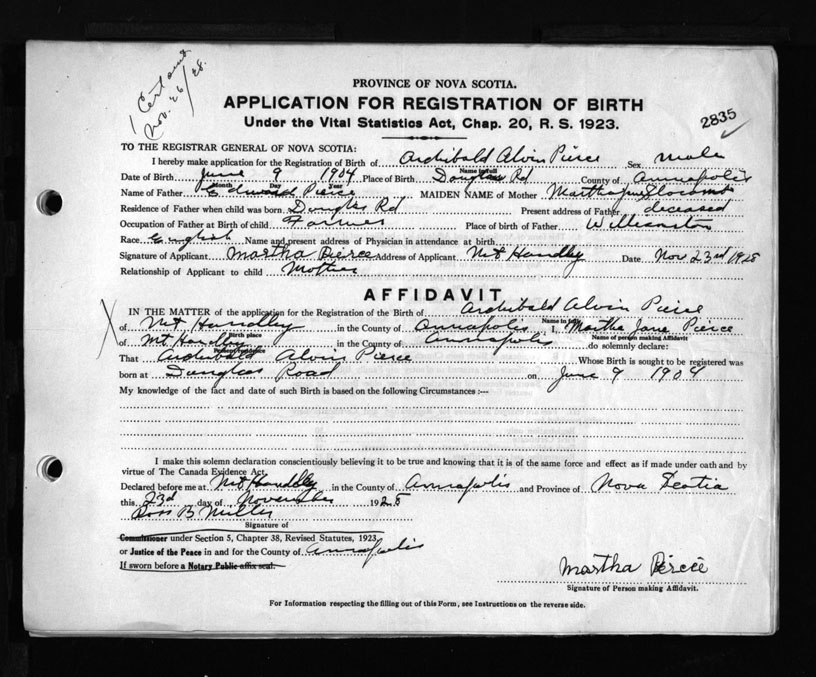 1 Cert
Nov. 26/28.
PROVINCE OF NOVA SCOTIA.
APPLICATION FOR REGISTRATION OF BIRTH
2835
Under the Vital Statistics Act, Chap. 20, R. S. 1923.
TO THE REGISTRAR GENERAL OF NOVA SCOTIA:
I hereby make application for the Registration of Birth of Archibald Alvin Pierce Sex male
Name in full
Date of Birth June 9 1904 Place of Birth Douglas Rd County of Annapolis
Month Day Year
Name of Father Edward Pierce MAIDEN NAME of Mother Martha Jane
Residence of Father when child was born Douglas Rd Present address of Father deceased
Occupation of Father at Birth of child Farmer Place of birth of Father Williamston
Race English Name and present address of Physician in attendance at birth
Signature of Applicant Martha Pierce Address of Applicant Mt Handley Date Nov 23rd 1928
Relationship of Applicant to child Mother
AFFIDAVIT
IN THE MATTER of the application for the Registration of the Birth of Archibald Alvin Pierce
Name in full
of Mt Handley in the County of Annapolis, I, Martha Jane Pierce
Birth place Name of person making Affidavit
of Mt Handley in the County of Annapolis do solemnly declare:
Present residence
That Archibald Alvin Pierce Whose Birth is sought to be registered was
born at Douglas Road on June 9 1904
My knowledge of the fact and date of such Birth is based on the following Circumstances :—
I make this solemn declaration conscientiously believing it to be true and knowing that it is of the same force and effect as if made under oath and by
virtue of The Canada Evidence Act.
Declared before me at Mt Handley in the County of Annapolis and Province of Nova Scotia
this 23rd day of November 1928
Ross B Miller
Signature of
Commissioner under Section 5, Chapter 38, Revised Statutes, 1923
or Justice of the Peace in and for the County of Annapolis
If sworn before a Notary Public affix seal.
Martha Pierce
Signature of Person making Affidavit.
For Information respecting the filling out of this Form, see Instructions on the reverse side.